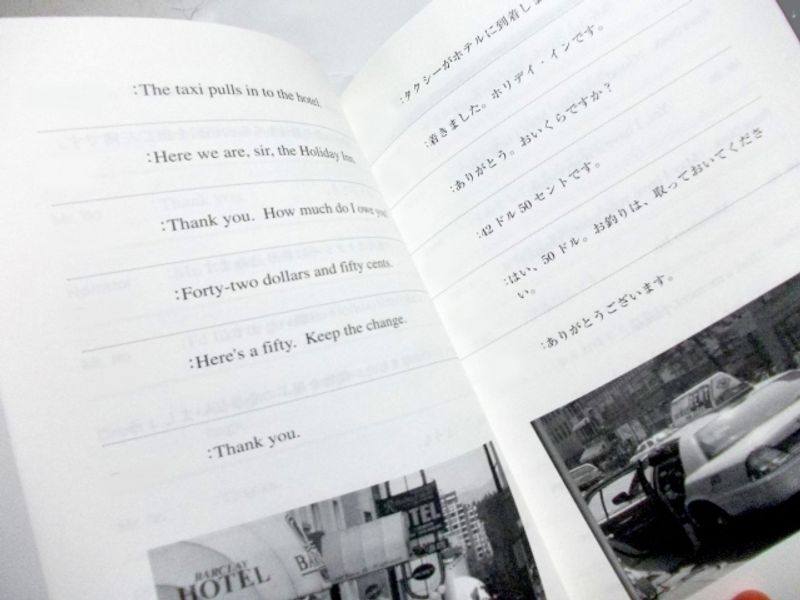 :The taxi pulls in to the hotel.
:Here we are, sir, the Holiday Inn.
:Thank you. How much do I owe you
:Forty-two dollars and fifty cents.
:Here's a fifty. Keep the change.
:Thank you.
BARCLAY
HOTEL
:タクシーがホテルに到着しま
:着きました。ホリデイ・インです。
:ありがとう。おいくらですか？
:42ドル50セントです。
:はい、50ドル。お釣りは、取っておいてくださ
い。
:ありがとうございます。